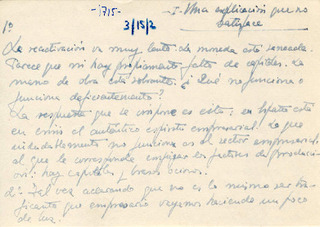 -1715-
I- Una explicación que no
satisface
3/15/2
1º
La reactivación va muy lenta de manera está
Parece que no hay propiamente falta de capitales. La
mano de obra está sobrante. ¿Qué no funciona o
funciona deficientemente?
La respuesta que se impone es esta: en España está
en crisis el auténtico espíritu empresarial. Lo que
evidentemente no funciona es el sector empresarial
al que le corresponde conjugar los factores de producción
: hay capitales y brazos ociosos.
Tal vez aclarando que no es lo mismo ser tra-
ficante que empresario vayamos haciendo un poco
de luz.